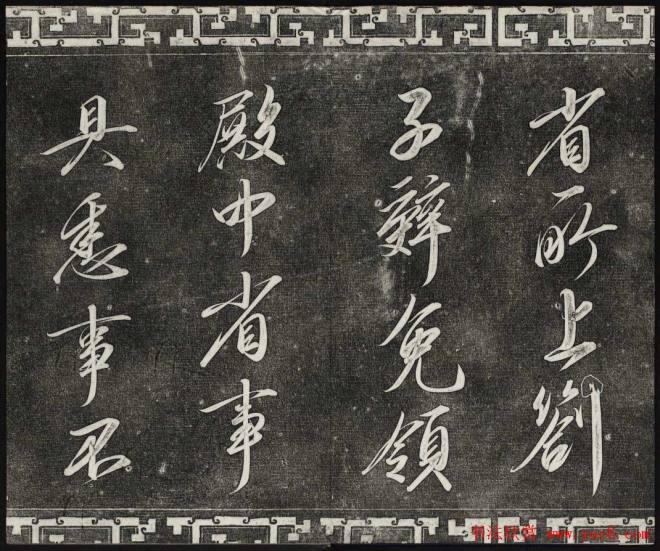 省所上劄
子辭免領
殿中省事
具悉事不
书法欣赏 www.yac8.com